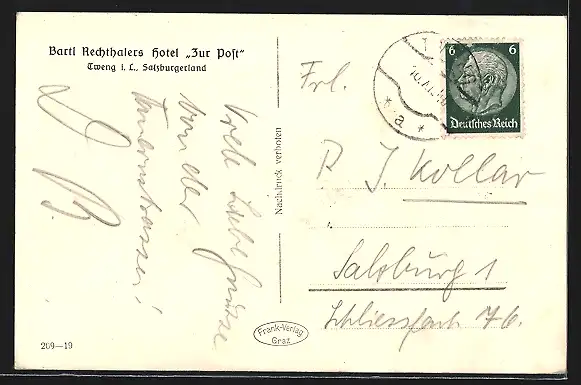 Bartl Rechthalers Hotel „Zur Post"
Tweng i. L., Salzburgerland
Viele liebe Grüsse
von der
Tauernstrasse!
Nachdruck verboten
Frank-Verlag
Graz
209—19
6 6
Deutsches Reich
* a *
Frl.
J. Kollar
Salzburg 1
Schliessfach 76.